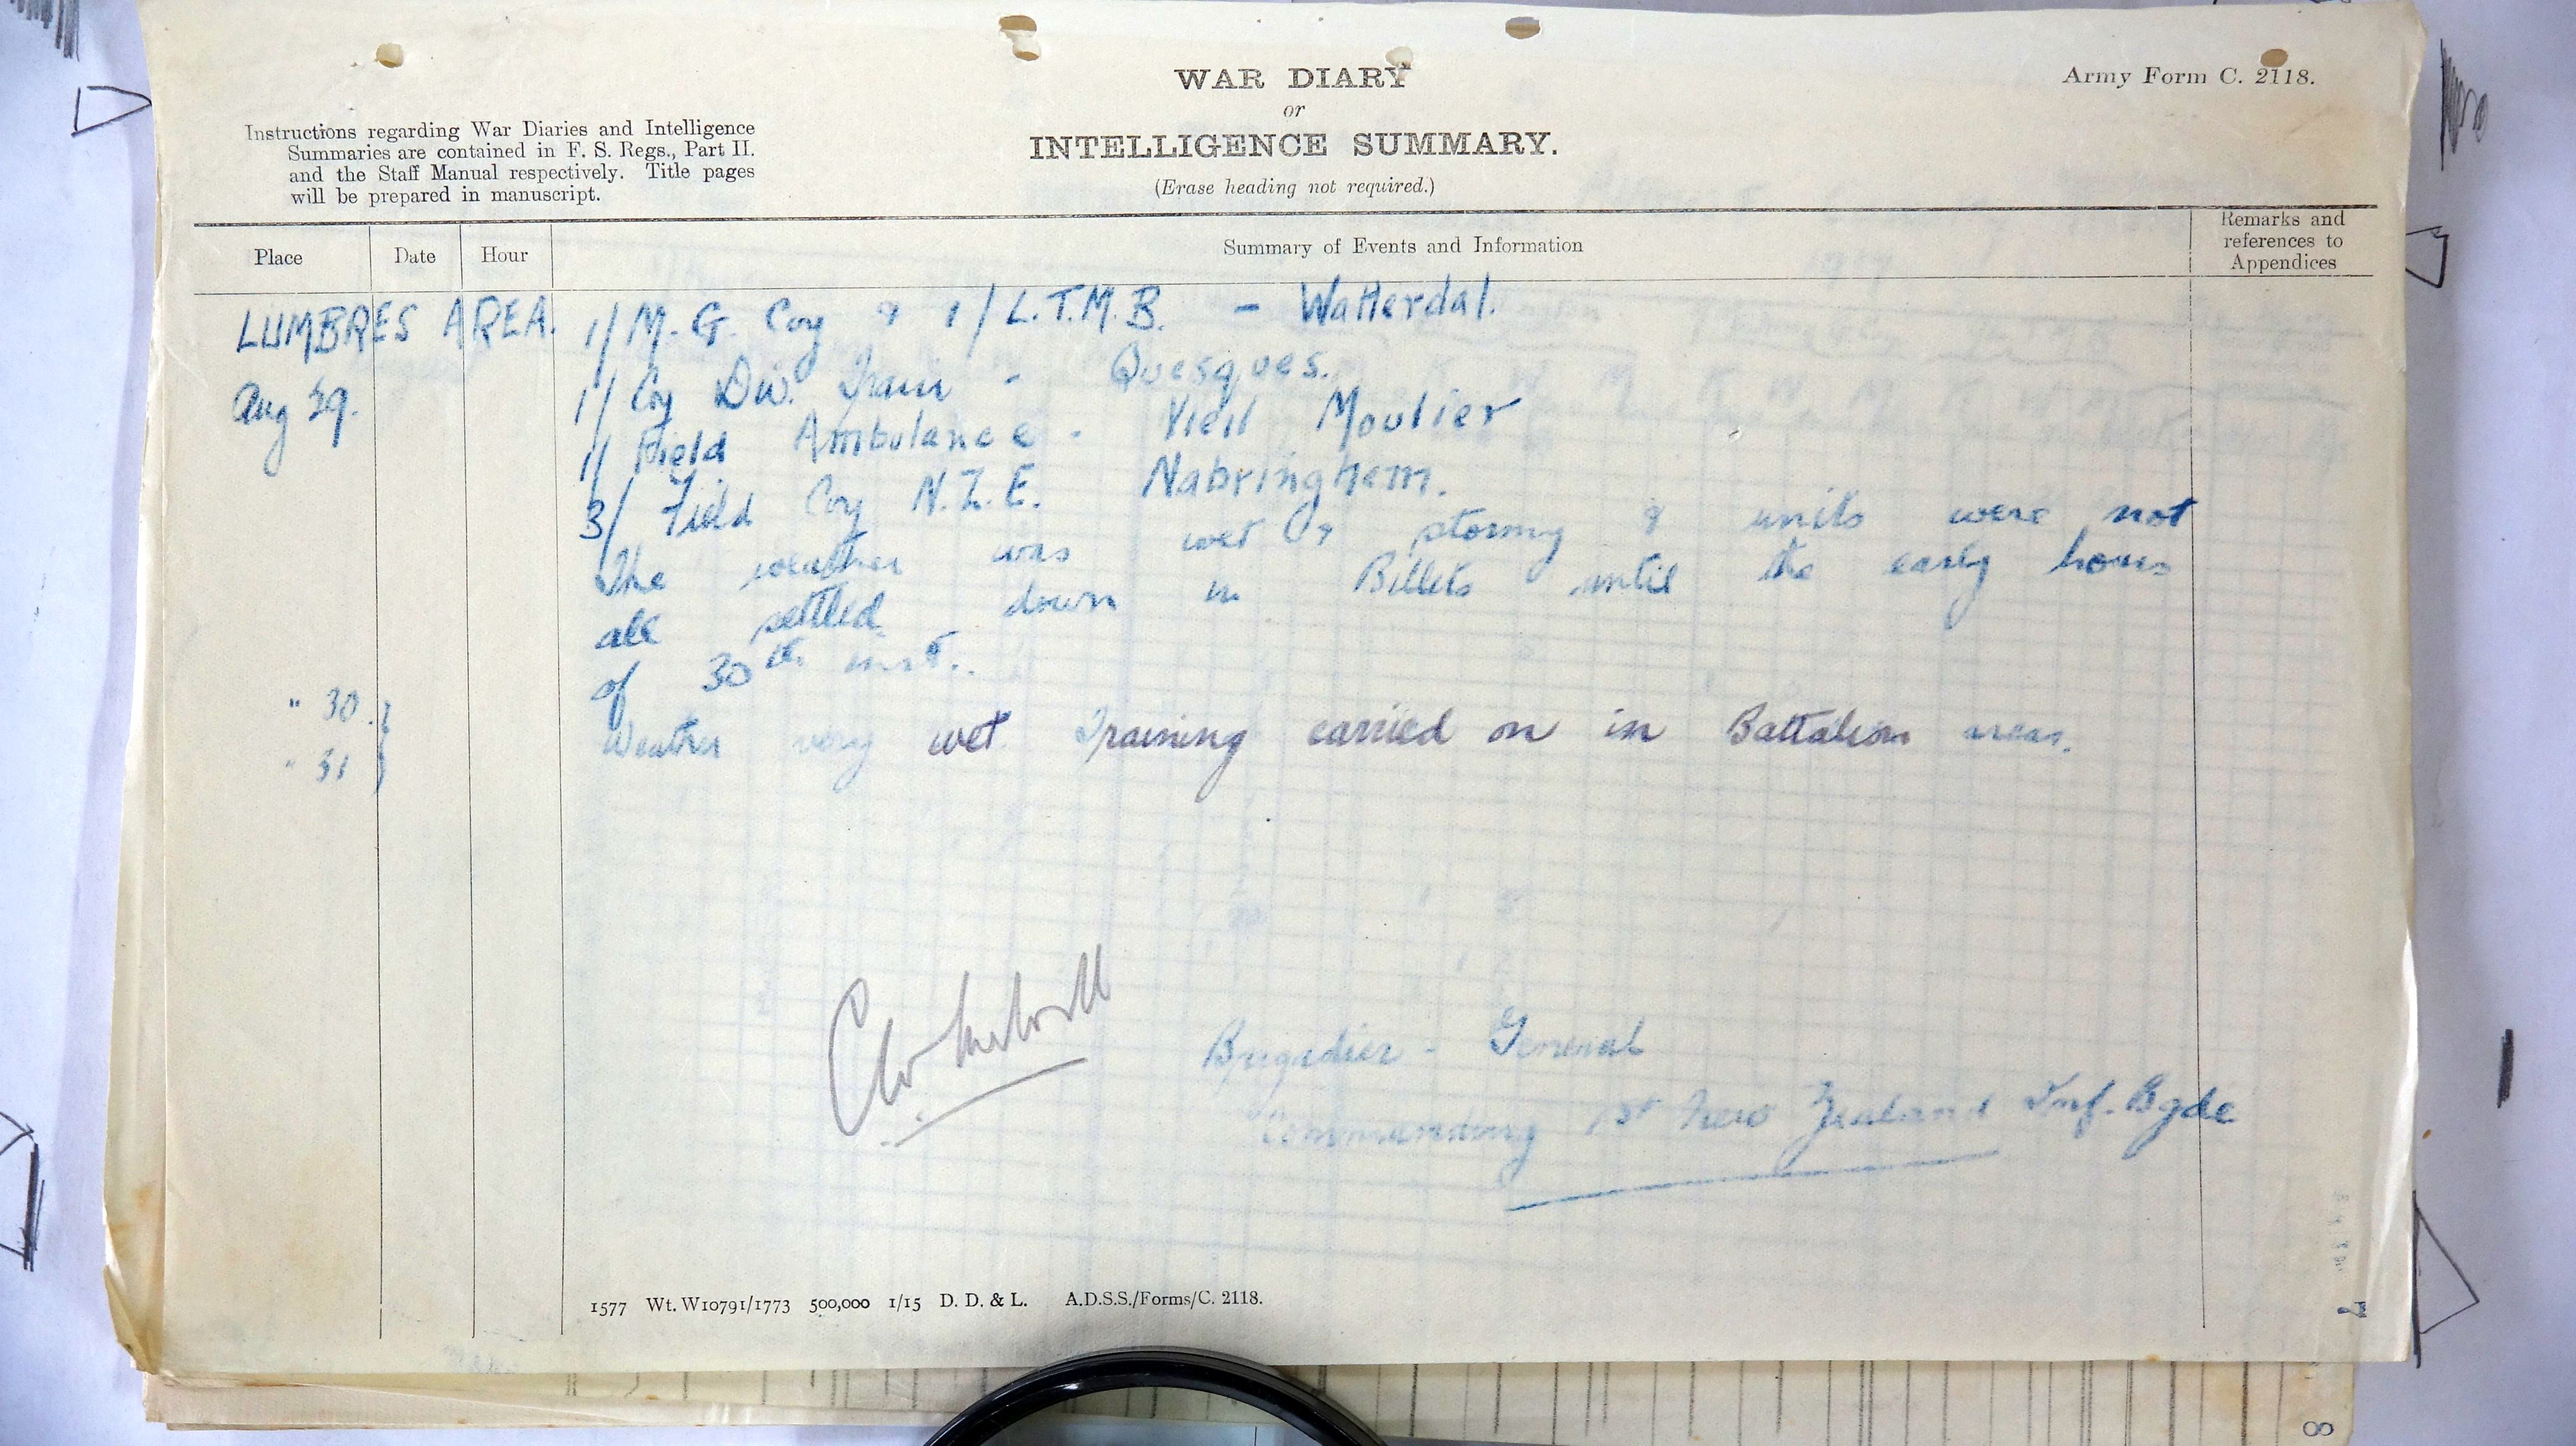 WAR DIARY
or
INTELLIGENCE SUMMARY.
(Erase heading not required.)
Army Form C. 2118.
Instructions regarding War Diaries and Intelligence
Summaries are contained in F. S. Regs., Part II.
and the Staff Manual respectively. Title pages
will be prepared in manuscript.
Place Date Hour Summary of Events and Information Remarks and references to Appendices
LUMBRES AREA. 1/ M. G. Coy & 1/ L.T.M.B. - Watterdal.
Aug 29. 1/ Coy Div. Train - Quesques.
1/ Field Ambulance - Vieil Moutier
3/ Field Coy N.Z.E. Nabringhem.
The weather was wet & stormy & units were not
all settled down in Billets until the early hours
of 30th inst.
" 30 } Weather very wet Training carried on in Battalion areas.
" 31 }
Brigadier - General
Commanding 1st New Zealand Inf. Bgde
1577 Wt. W10791/1773 500,000 1/15 D. D. & L. A.D.S.S./Forms/C. 2118.
7
8